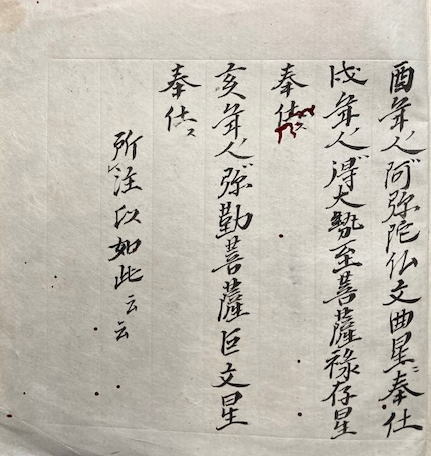 酉年人ハ阿弥陀仏文曲星ニ奉仕
戌年人ハ得大勢至菩薩禄存星
奉仕ス
亥年人ハ弥勒菩薩巨文星
奉仕ス
所注以如此云云